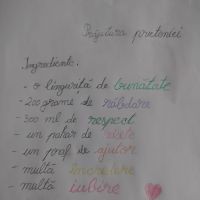 Prăjitura prieteniei
Ingrediente:
- o linguriță de bunătate
- 200 grame de răbdare
- 300 ml de respect
- un pahar de
- un praf de ajutor
- multă încredere
- multă iubire